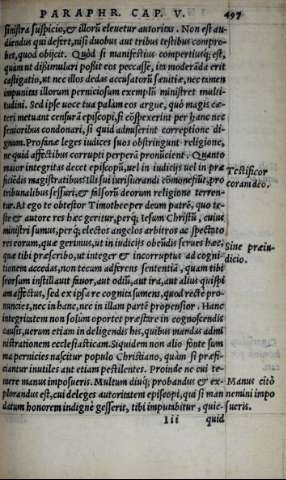 PARAPHR. CAP. V. 497
sinistra suspicio, & illorũ eleuetur autoritas. Non est au-
diendus qui defert, nisi duobus aut tribus testibus compro-
bet, quod obijcit. Quòd si manifestius compertiusq́; est,
quàm ut dissimulari possit eos peccasse, ita moderãda erit
castigatio, ut nec illos dedas accusatorũ sæuitiæ, nec tamen
impunitas illorum perniciosum exemplũ ministret multi-
tudini. Sed ipse uoce tua palàm eos argue, quò magis cæ-
teri metuant censurã episcopi, si cõspexerint per hanc nec
senioribus condonari, si quid admiserint correptione di-
gnum. Profanæ leges iudices suos obstringunt religione,
ne quid affectibus corrupti perperã pronũcient. Quanto
maior integritas decet episcopũ, uel in iudicijs uel in præ
ficiẽdis magistratibus? Illi sui iurisiurandi cõmonefiũt, pro
tribunalibus sessuri, & falsorũ deorum religione terren-
tur. At ego te obtestor Timothee per deum patrẽ, quo te-
ste & autore res hæc geritur, perq́; Iesum Christũ, cuius
ministri sumus, perq́; electos angelos arbitros ac spectato
res eorum, quæ gerimus, ut in iudicijs obeũdis serues hæc,
quæ tibi præscribo, ut integer & incorruptus ad cogni-
tionem accedas, non tecum adferens sententiã, quam tibi
seorsum instillauit fauor, aut odiũ, aut ira, aut alius quispi
am affectus, sed ex ipsa re cognita sumens, quod rectè pro-
nuncies, nec in hanc, nec in illam partẽ propensior. Hanc
integritatem non solum oportet præstare in cognoscendis
causis, uerum etiam in deligendis his, quibus mandas admi
nistrationem ecclesiasticam. Siquidem non alio fonte sum
ma pernicies nascitur populo Christiano, quàm si præfi-
ciantur inutiles aut etiam pestilentes. Proinde ne cui te-
mere manus imposueris. Multum diuq́; probandus & ex-
plorandus est, cui deleges autoritatem episcopi, qui si man
datum honorem indignè gesserit, tibi imputabitur, quic-
Iii quid
Testificor
coram deo.
Sine præiu-
dicio.
Manus citò
nemini impo
sueris.